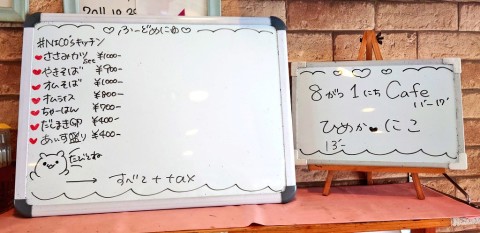 ふーどめにゅー
#NICO'sキッチン
ささみカツset ¥1000-
やきそば ¥900-
オムそば ¥1000-
オムライス ¥800-
ちゃーはん ¥700-
だしまき ¥400-
あいす盛り ¥400-
たべてね
すべて+tax
8がつ1にち Cafe
ひめか にこ